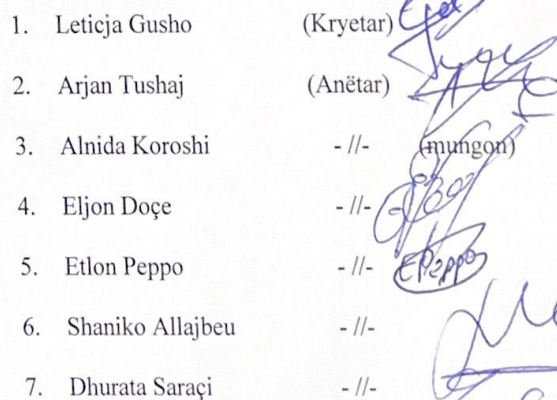 1. Leticja Gusho (Kryetar)
2. Arjan Tushaj (Anëtar)
3. Alnida Koroshi - //- (mungon)
4. Eljon Doçe - //-
5. Etlon Peppo - //- EPeppo
6. Shaniko Allajbeu - //-
7. Dhurata Saraçi - //-